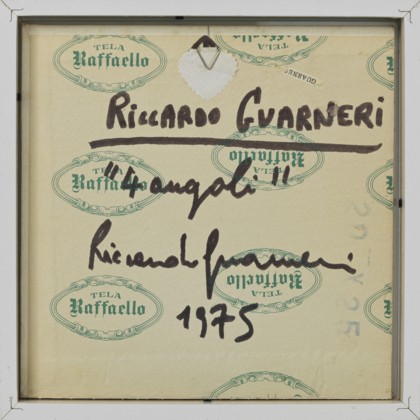 TELA
Raffaello
TELA
Raffaello
GUARNE
RICCARDO GUARNERI
TELA
Raffaello
TELA
Raffaello
"4 angoli"
Riccardo Guarneri
TELA
Raffaello
TELA
Raffaello
1975